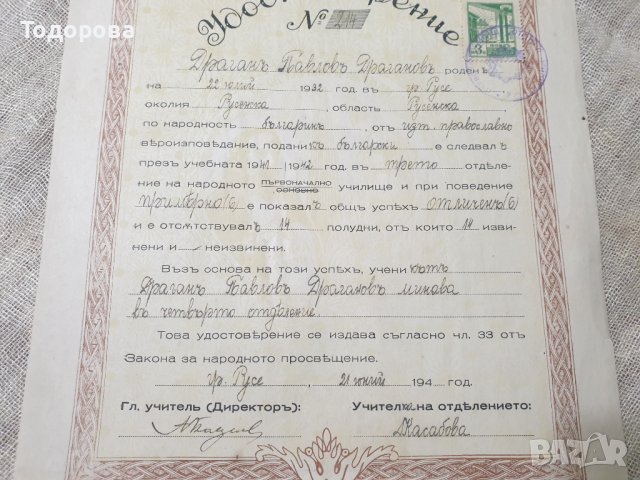 Тодорова
Удостоверение
№ 214
3
Драганъ Павловъ Драгановъ роденъ
на 22 юний 1932 год. въ гр. Русе
околия Русенска, область Русенска
по народность българинъ, отъ изт. православно
вѣроизповѣдание, подани къ български е следвалъ
презъ учебната 1941/1942 год. въ трето отдѣле-
ние на народното първоначално основно училище и при поведение
примѣрно (6) е показалъ общъ успѣхъ отличенъ (6)
и е отсѫтствувалъ 14 полудни, отъ които 14 изви-
нени и — неизвинени.
Възъ основа на този успѣхъ, учени кътъ
Драганъ Павловъ Драгановъ минава
въ четвърто отдѣление.
Това удостовѣрение се издава съгласно чл. 33 отъ
Закона за народното просвѣщение.
гр. Русе, 21 юний 194 год.
Гл. учитель (Директоръ): Учителка на отдѣлението:
Касабова
BAZAR
bg